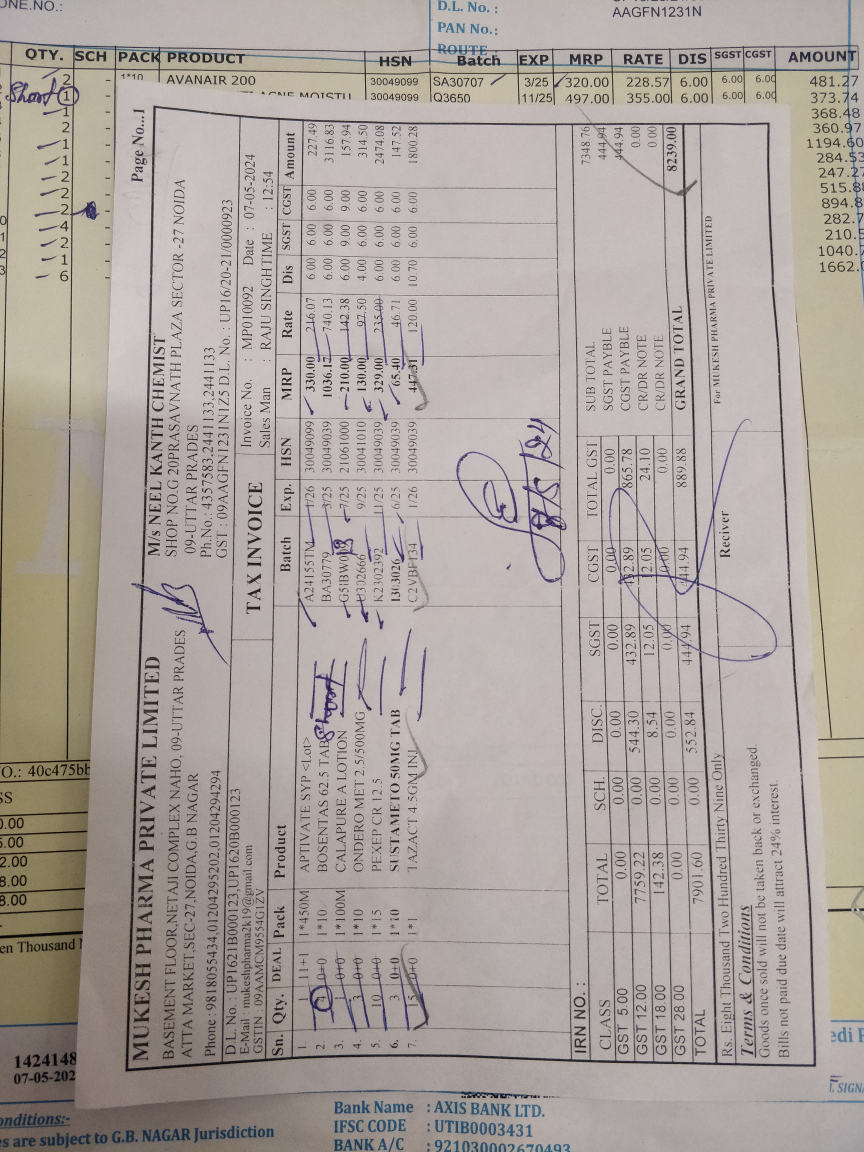 ONE.NO.:
D.L. No. :
AAGFN1231N
PAN No.:
ROUTE
QTY. SCH PACK PRODUCT HSN Batch EXP MRP RATE DIS SGST CGST AMOUNT
2 - 1*10 AVANAIR 200 30049099 SA30707 3/25 320.00 228.57 6.00 6.00 6.00 481.27
Short 1 - 30049099 Q3650 11/25 497.00 355.00 6.00 6.00 6.00 373.74
1 - 368.48
2 - 360.97
1 - 1194.60
1 - 284.53
2 - 247.27
2 - 515.88
2 - 894.8
4 - 282.7
2 - 210.5
1 - 1040.7
6 - 1662.0
Page No...1
MUKESH PHARMA PRIVATE LIMITED
BASEMENT FLOOR,NETAJI COMPLEX NAHO, 09-UTTAR PRADES
ATTA MARKET,SEC-27,NOIDA,G.B NAGAR
Phone : 9818055434,01204295202,01204294294
D.L. No. : UP1621B000123,UP1620B000123
E-Mail : mukeshpharma2k19@gmail.com
GSTIN : 09AAMCM9554G1ZV
M/s NEEL KANTH CHEMIST
SHOP NO.G 20PRASAVNATH PLAZA SECTOR -27 NOIDA
09-UTTAR PRADES
Ph.No.: 4357583,2441133,2441133
GST : 09AAGFN1231N1Z5 D.L. No. : UP16/20-21/0000923
TAX INVOICE
Invoice No. : MP010092 Date : 07-05-2024
Sales Man : RAJU SINGH TIME : 12:54
Sn. Qty. DEAL Pack Product Batch Exp. HSN MRP Rate Dis SGST CGST Amount
1. 1 11+1 1*450M APTIVATE SYP <Lot> A24155TM 1/26 30049099 330.00 216.07 6.00 6.00 6.00 227.49
2. 0+0 1*10 BOSENTAS 62.5 TAB Short BA30779 3/25 30049039 1036.17 740.13 6.00 6.00 6.00 3116.83
3. 1 0+0 1*100M CALAPURE A LOTION 7/25 21061000 210.00 142.38 6.00 9.00 9.00 157.94
4. 3 0+0 1*10 ONDERO MET 2.5/500MG 9/25 30041010 130.00 97.50 4.00 6.00 6.00 314.50
5. 10 0+0 1*15 PEXEP CR 12.5 K2302392 11/25 30049039 329.00 235.00 6.00 6.00 6.00 2474.08
6. 3 0+0 1*10 SUSTAMETO 50MG TAB 6/25 30049039 65.40 46.71 6.00 6.00 6.00 147.52
7. 15 0+0 1*1 TAZACT 4.5GM INJ C2VBF134 1/26 30049039 447.31 120.00 10.70 6.00 6.00 1800.28
8/5/24
IRN NO. :
CLASS TOTAL SCH. DISC. SGST CGST TOTAL GST
GST 5.00 0.00 0.00 0.00 0.00 0.00 0.00
GST 12.00 7759.22 0.00 544.30 432.89 432.89 865.78
GST 18.00 142.38 0.00 8.54 12.05 12.05 24.10
GST 28.00 0.00 0.00 0.00 0.00 0.00 0.00
TOTAL 7901.60 0.00 552.84 444.94 444.94 889.88
SUB TOTAL 7348.76
SGST PAYBLE 444.94
CGST PAYBLE 444.94
CR/DR NOTE 0.00
CR/DR NOTE 0.00
GRAND TOTAL 8239.00
Rs. Eight Thousand Two Hundred Thirty Nine Only
Terms & Conditions
Goods once sold will not be taken back or exchanged.
Bills not paid due date will attract 24% interest.
Reciver
For MUKESH PHARMA PRIVATE LIMITED
O.: 40c475bb
SS
0.00
5.00
2.00
8.00
8.00
en Thousand
1424148
07-05-202
edi P
. SIGNA
onditions:-
es are subject to G.B. NAGAR Jurisdiction
Bank Name : AXIS BANK LTD.
IFSC CODE : UTIB0003431
BANK A/C : 921030002670493